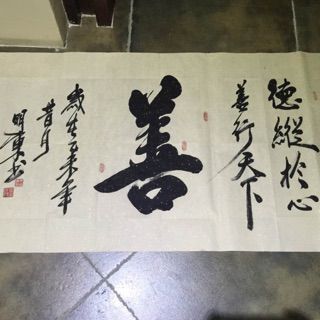 德縱於心
善行天下
善
歲在乙未年
昔月
明東书